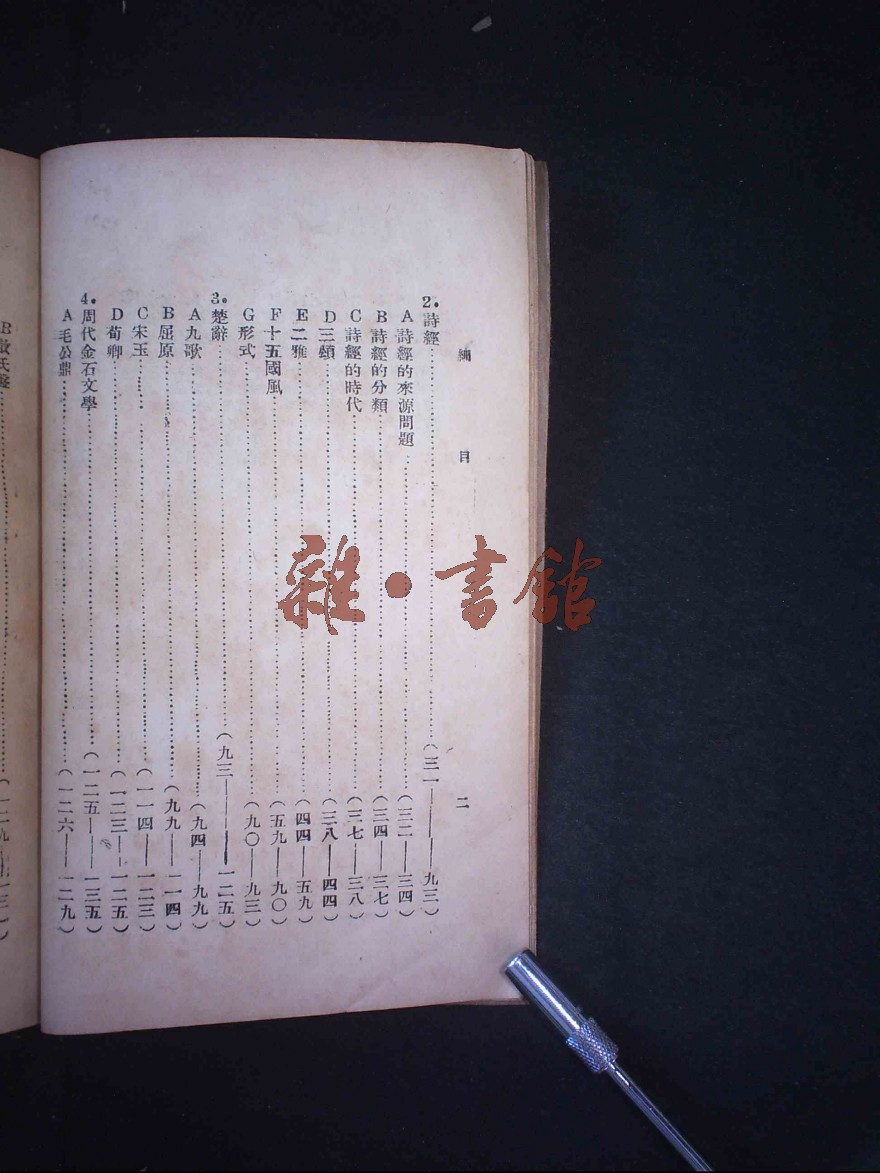 細目 二
2.詩經……(三一——九三)
A 詩經的來源問題……(三二——三四)
B 詩經的分類……(三四——三七)
C 詩經的時代……(三七——三八)
D 三頌……(三八——四四)
E 二雅……(四四——五九)
F 十五國風……(五九——九〇)
G 形式……(九〇——九三)
3.楚辭……(九三——一二五)
A 九歌……(九四——九九)
B 屈原……(九九——一一四)
C 宋玉……(一一四——一二三)
D 荀卿……(一二三——一二五)
4.周代金石文學……(一二五——一三五)
A 毛公鼎……(一二六——一二九)
雜·書館